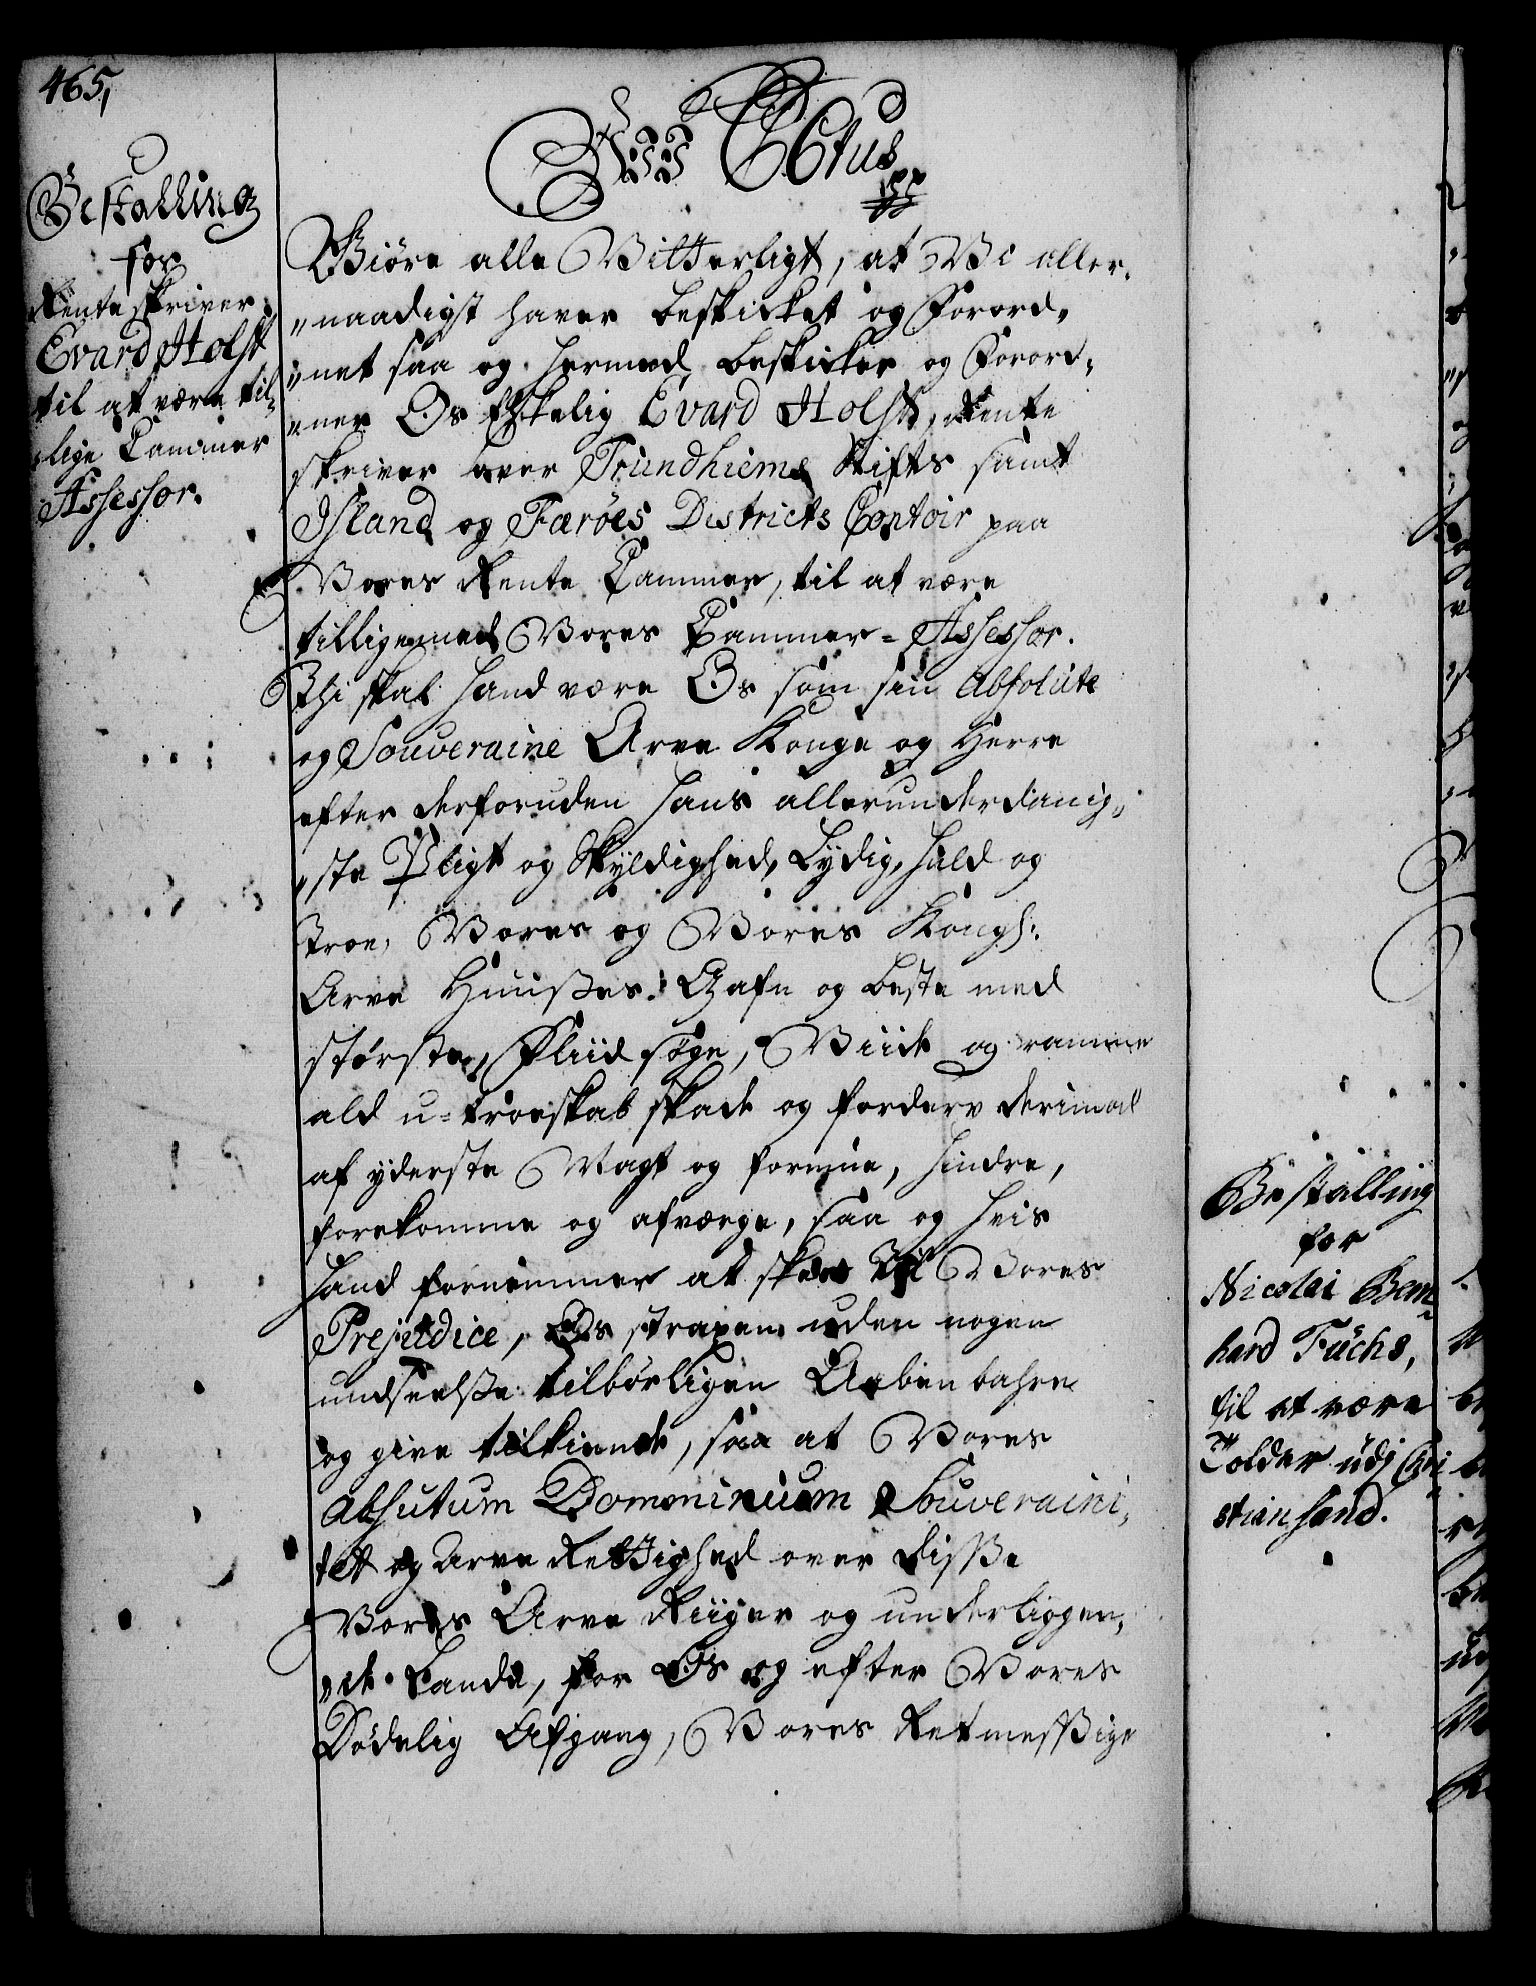 465,
Bestalling
for
Renteskriver
Evard Holst
til at være til-
lige Cammer
Assessor.
Ctus
Giöre alle Vitterligt, at Vi aller-
naadigst haver beskicket og Forord-
net saa og hermed beskicker og Forord-
ner Os Elskelig Evard Holst, Rente
skriver over Trundhiems Stifts samt
Island og Færöes Districts Contoir paa
Vores Rente Cammer, til at være
tilligemed Vores Cammer-Assessor.
Thi skal hand være Os som sin Absolute
og Souveraine Arve Konge og Herre
efter derforuden hans allerunderdanig-
ste Pligt og Skyldighed, Lydig, huld og
troe, Vores og Vores Kongl:
Arve Huuses Gafn og beste med
största Fliid søge, Viide og ramme
ald u-troeskab skade og forderv derimod
af yderste Magt og formue, hindre,
forekomme og afværge, saa og hvis
hand fornemmer at skee til Vores
Prejudice, Os straxen uden nogen
undseelse tilbørligen Aabenbahre
og give tilkiende, saa at Vores
Absutum Domminium Souveraini-
tet og Arve Rettighed over disse
Vores Arve Riiger og underliggen-
de Lande, for Os og efter Vores
Dødelig Afgang, Vores Retmessige
Bestalling
for
Nicolai Bern-
hard Füchs,
til at være
Tolder udj Chri-
stiansand.